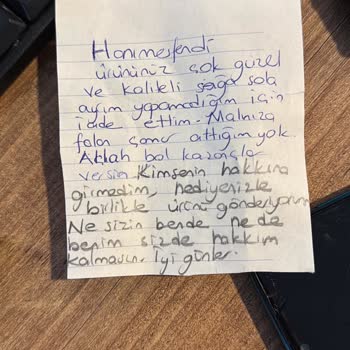 Hanımefendi
ürününüz çok güzel
ve kaliteli sağa sola
ayım yapamadığım için
iade ettim. Malınıza
falan çamur attığım yok.
Allah bol kazançlar
versin Kimsenin hakkına
girmedim, hediyenizle
birlikte ürünü gönderiyorum
Ne sizin bende ne de
benim sizde hakkım
kalmasın. İyi günler.